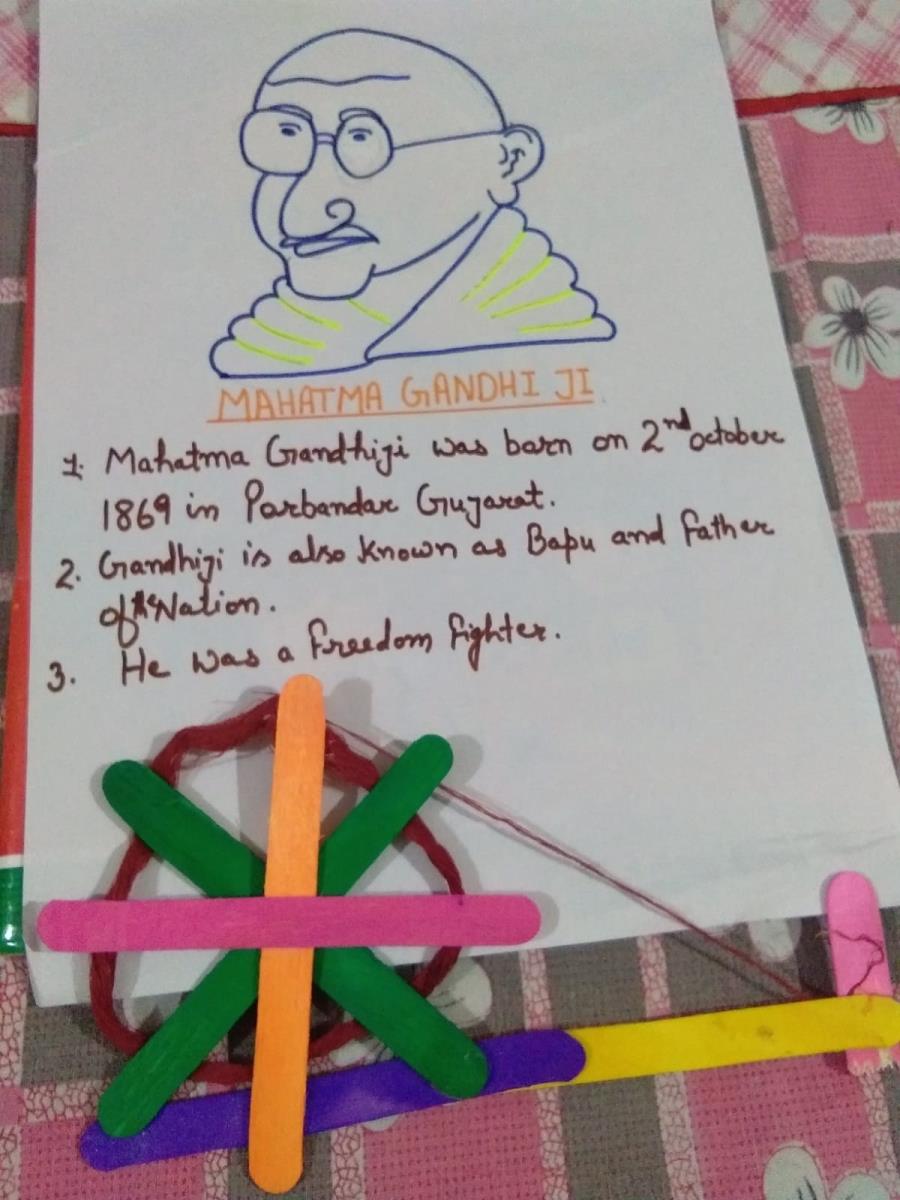 MAHATMA GANDHI JI
1. Mahatma Gandhiji was barn on 2nd october
1869 in Parbandar Gujarat.
2. Gandhiji is also known as Bapu and father
of the Nation.
3. He was a freedom fighter.